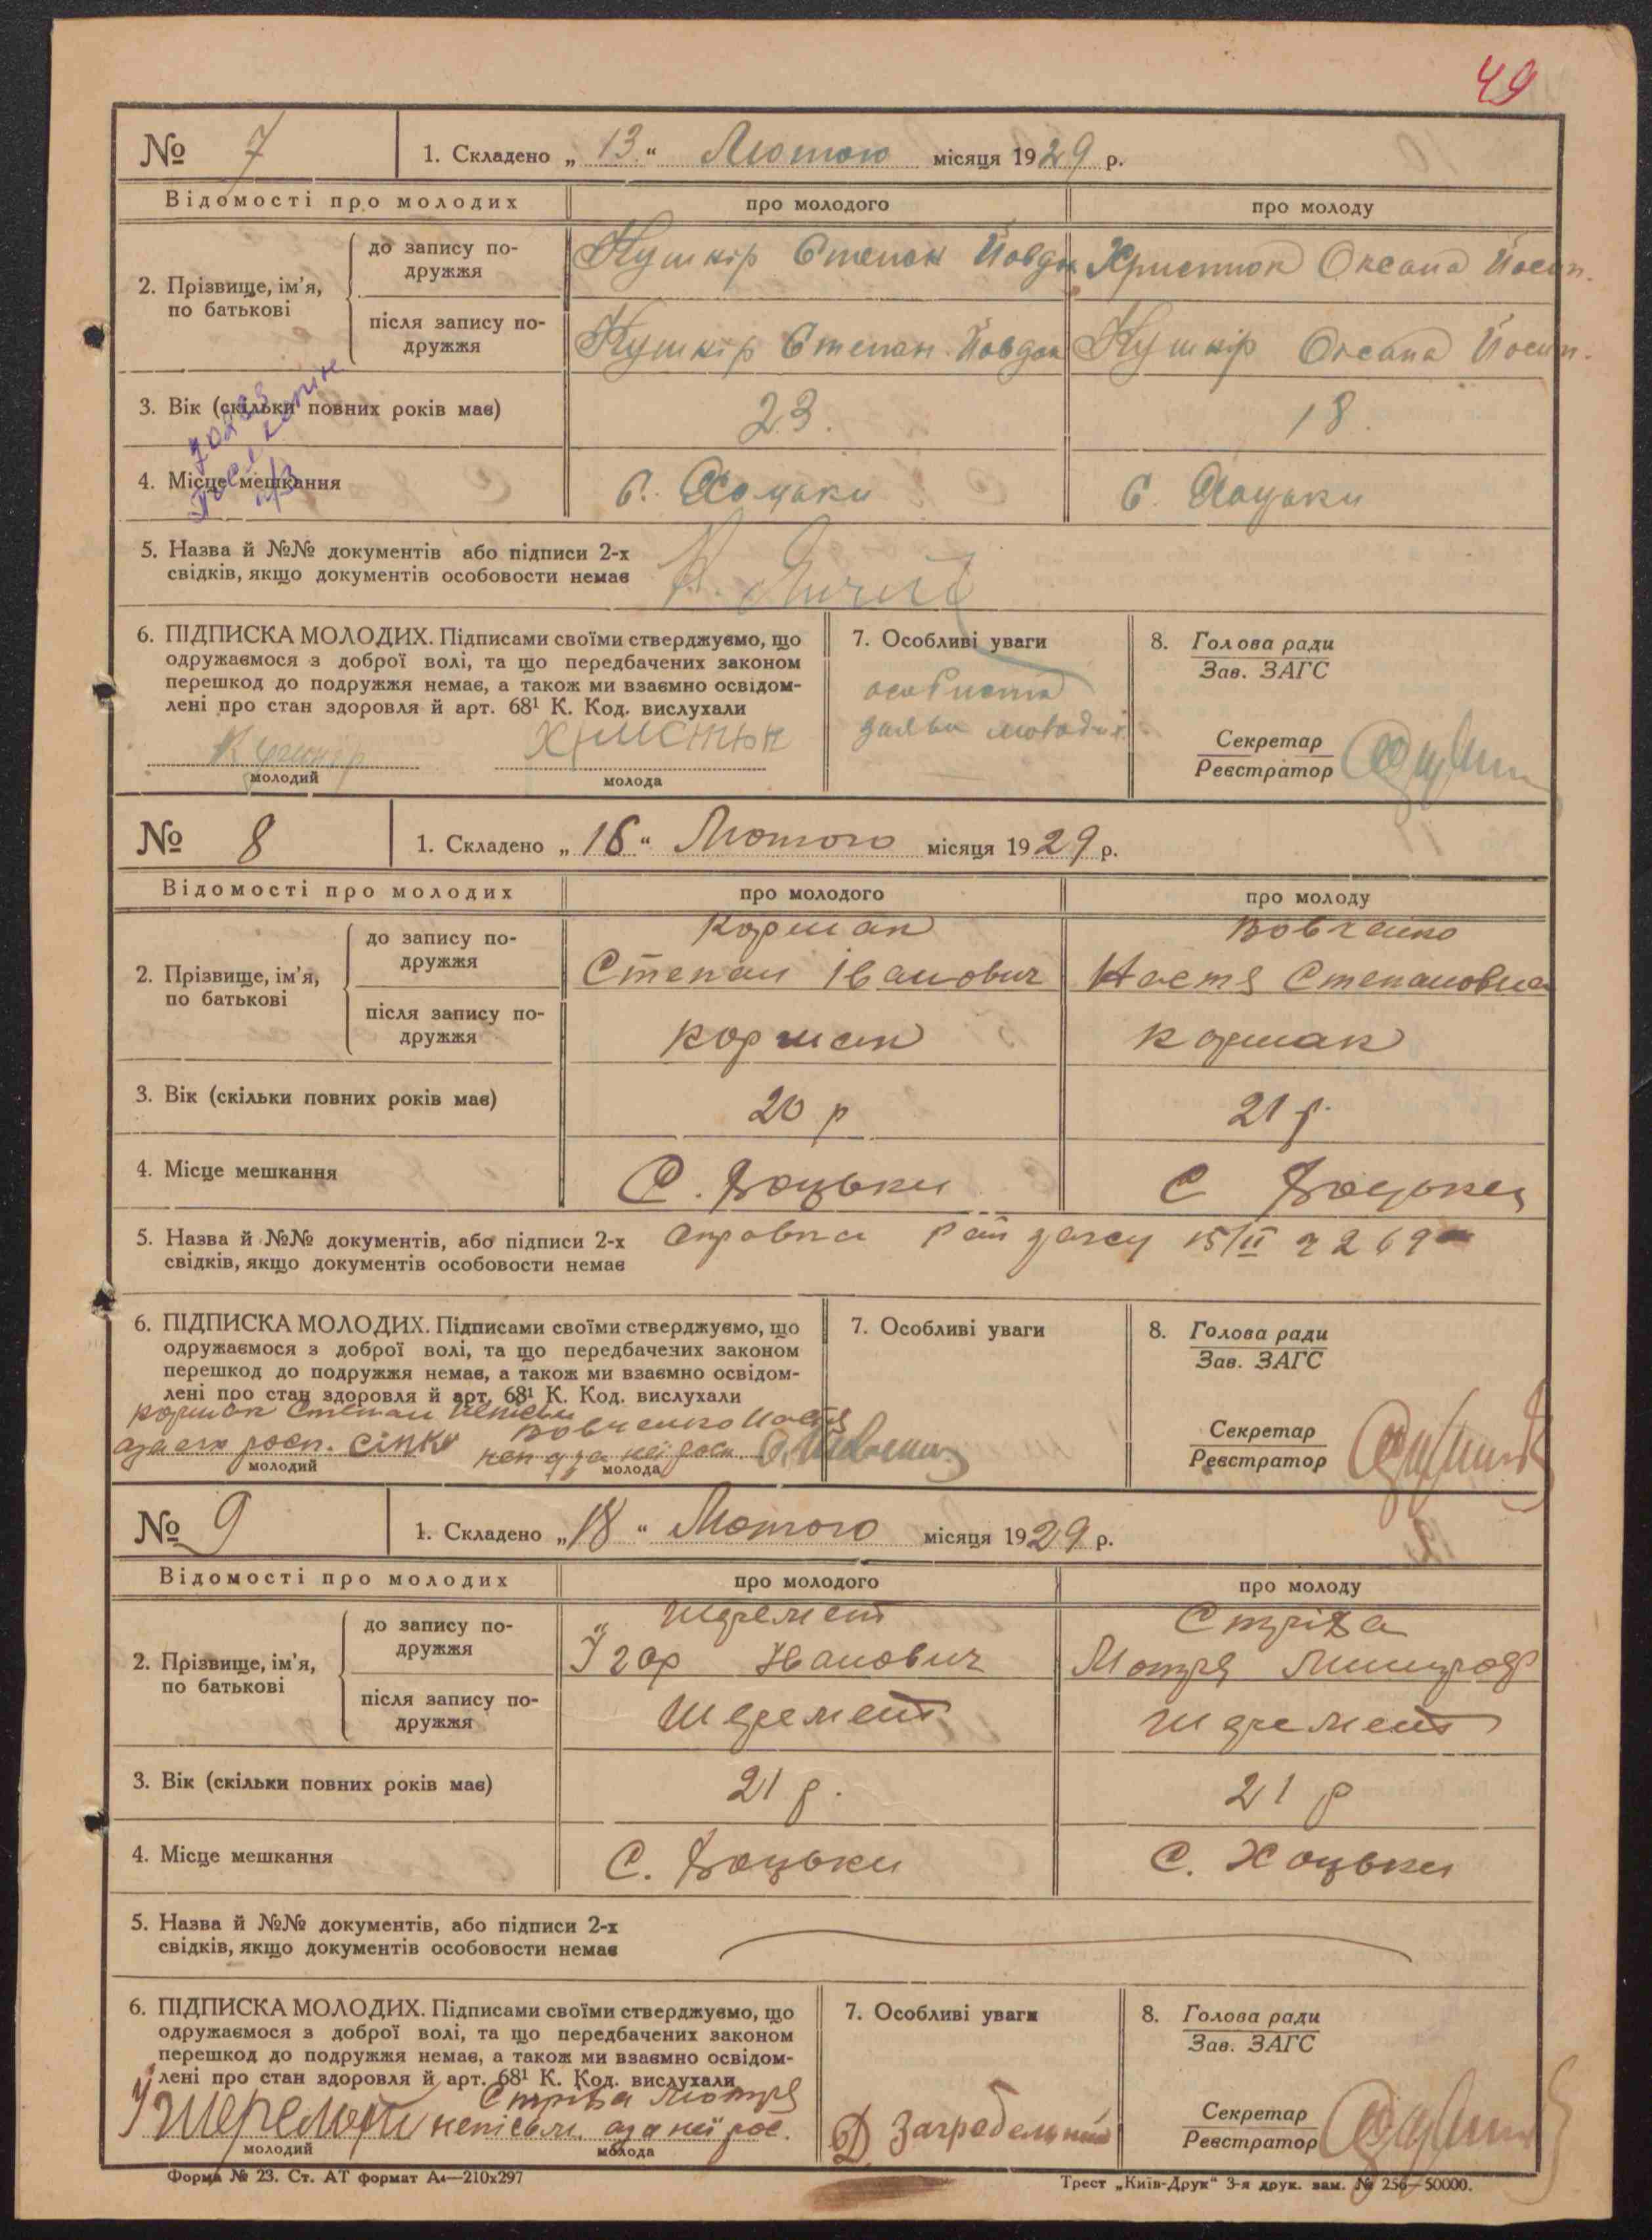 49
№ 7 1. Складено „ 13 “ Лютого місяця 1929 р.
Відомості про молодих про молодого про молоду
2. Прізвище, ім’я, по батькові
до запису по-
дружжя
Кушнір Степан Йовдок Христюк Оксана Йосип.
після запису по-
дружжя
Кушнір Степан Йовдок Кушнір Оксана Йосип.
3. Вік (скільки повних років має) 23. 18.
4. Місце мешкання С. Хоцьки С. Хоцьки
5. Назва й №№ документів або підписи 2-х
свідків, якщо документів особовости немає
6. ПІДПИСКА МОЛОДИХ. Підписами своїми стверджуємо, що
одружаємося з доброї волі, та що передбачених законом
перешкод до подружжя немає, а також ми взаємно освідом-
лені про стан здоровля й арт. 68¹ К. Код. вислухали
Кушнір Христюк
молодий молода
7. Особливі уваги
особиста
заява молодих
8. Голова ради
Зав. ЗАГС
Секретар
Реєстратор
№ 8 1. Складено „ 16 “ Лютого місяця 1929 р.
Відомості про молодих про молодого про молоду
2. Прізвище, ім’я, по батькові
до запису по-
дружжя
Коршак Вовченко
Степан Іванович Настя Степановна
після запису по-
дружжя
Коршак Коршак
3. Вік (скільки повних років має) 20 р 21 р.
4. Місце мешкання С. Хоцьки С Хоцьки
5. Назва й №№ документів, або підписи 2-х
свідків, якщо документів особовости немає
Справка Рай загсу 15/II
6. ПІДПИСКА МОЛОДИХ. Підписами своїми стверджуємо, що
одружаємося з доброї волі, та що передбачених законом
перешкод до подружжя немає, а також ми взаємно освідом-
лені про стан здоровля й арт. 68¹ К. Код. вислухали
Коршак Степан Вовченко Настя
молодий молода
7. Особливі уваги
8. Голова ради
Зав. ЗАГС
Секретар
Реєстратор
№ 9 1. Складено „ 18 “ Лютого місяця 1929 р.
Відомості про молодих про молодого про молоду
2. Прізвище, ім’я, по батькові
до запису по-
дружжя
Шеремет
Іванович Мотря
після запису по-
дружжя
Шеремет Шеремет
3. Вік (скільки повних років має) 21 р. 21 р
4. Місце мешкання С. Хоцьки С. Хоцьки
5. Назва й №№ документів, або підписи 2-х
свідків, якщо документів особовости немає
6. ПІДПИСКА МОЛОДИХ. Підписами своїми стверджуємо, що
одружаємося з доброї волі, та що передбачених законом
перешкод до подружжя немає, а також ми взаємно освідом-
лені про стан здоровля й арт. 68¹ К. Код. вислухали
Мотря
молодий молода
7. Особливі уваги
Д Загребельний
8. Голова ради
Зав. ЗАГС
Секретар
Реєстратор
Форма № 23. Ст. АТ формат А4—210х297 Трест „Київ-Друк“ 3-я друк. зам. № 256—50000.